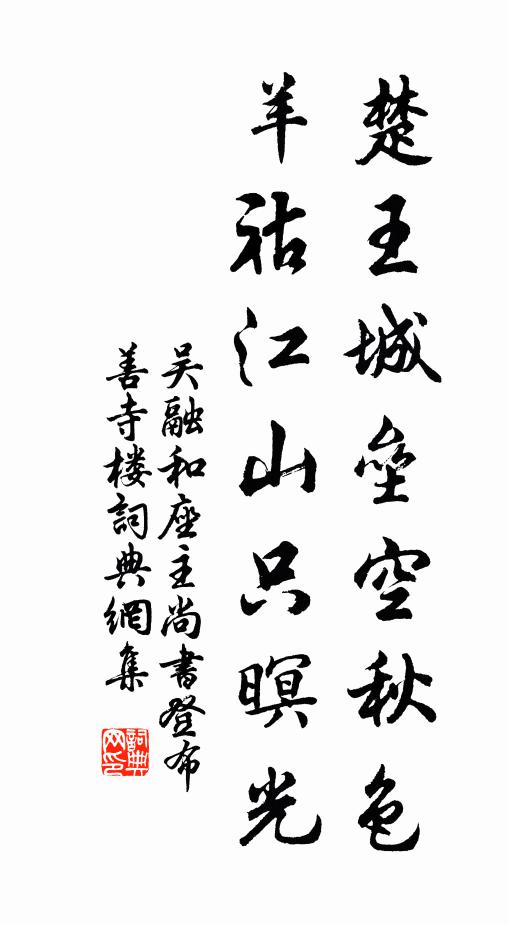 楚王城垒空秋色
羊祜江山只暝光
吴融和座主尚書登布
善寺楼詞典網集
詞典网印